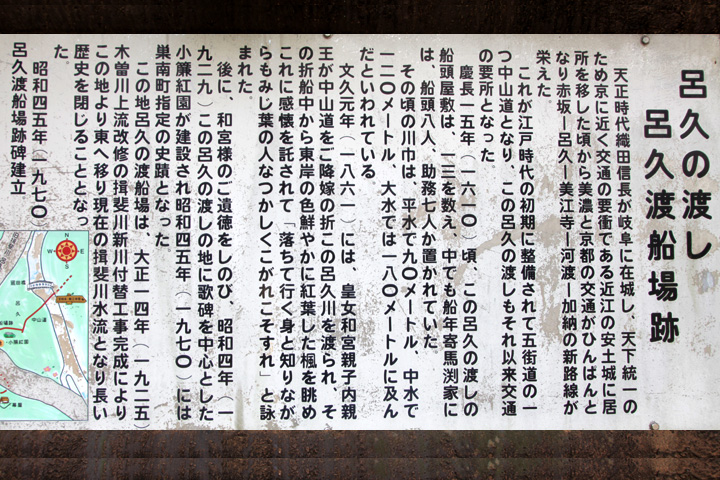 呂久の渡し
呂久渡船場跡
天正時代織田信長が岐阜に在城し、天下統一の
ため京に近く交通の要衝である近江の安土城に居
所を移した頃から美濃と京都の交通がひんぱんと
なり赤坂ー呂久ー美江寺ー河渡ー加納の新路線が
栄えた。
これが江戸時代の初期に整備されて五街道の一
つ中山道となり、この呂久の渡しもそれ以来交通
の要所となった
慶長一五年（一六一〇）頃、この呂久の渡しの
船頭屋敷は、一三を数え、中でも船年寄馬渕家に
は、船頭八人、助務七人か置かれていた。
その頃の川巾は、平水で九〇メートル、中水で
一二〇メートル、大水では一八〇メートルに及ん
だといわれている。
文久元年（一八六一）には、皇女和宮親子内親
王が中山道をご降嫁の折この呂久川を渡られ、そ
の折船中から東岸の色鮮やかに紅葉した楓を眺め
これに感懐を託されて「落ちて行く身と知りなが
らもみじ葉の人なつかしくこがれこそすれ」と詠
まれた
後に、和宮様のご遺徳をしのび、昭和四年（一
九二九）この呂久の渡しの地に歌碑を中心とした
小簾紅園が建設され昭和四五年（一九七〇）には
巣南町指定の史蹟となった
この地呂久の渡船場は、大正一四年（一九二五）
木曽川上流改修の揖斐川新川付替工事完成により
この地より東へ移り現在の揖斐川水流となり長い
歴史を閉じることとなっ
た。
昭和四五年（一九七〇）
呂久渡船場跡碑建立
N
W
E
S
呂久
中山道
小簾紅園